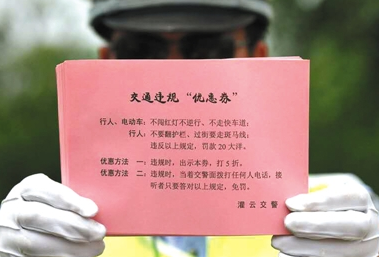 交通违规“优惠券”
行人、电动车：不闯红灯不逆行、不走快车道；
行人：不要翻护栏、过街要走斑马线；
违反以上规定，罚款20大洋。
优惠方法 一：违规时，出示本券，打5折。
优惠方法 二：违规时，当着交警面拨打任何人电话，接
听者只要答对以上规定，免罚。
灌云交警